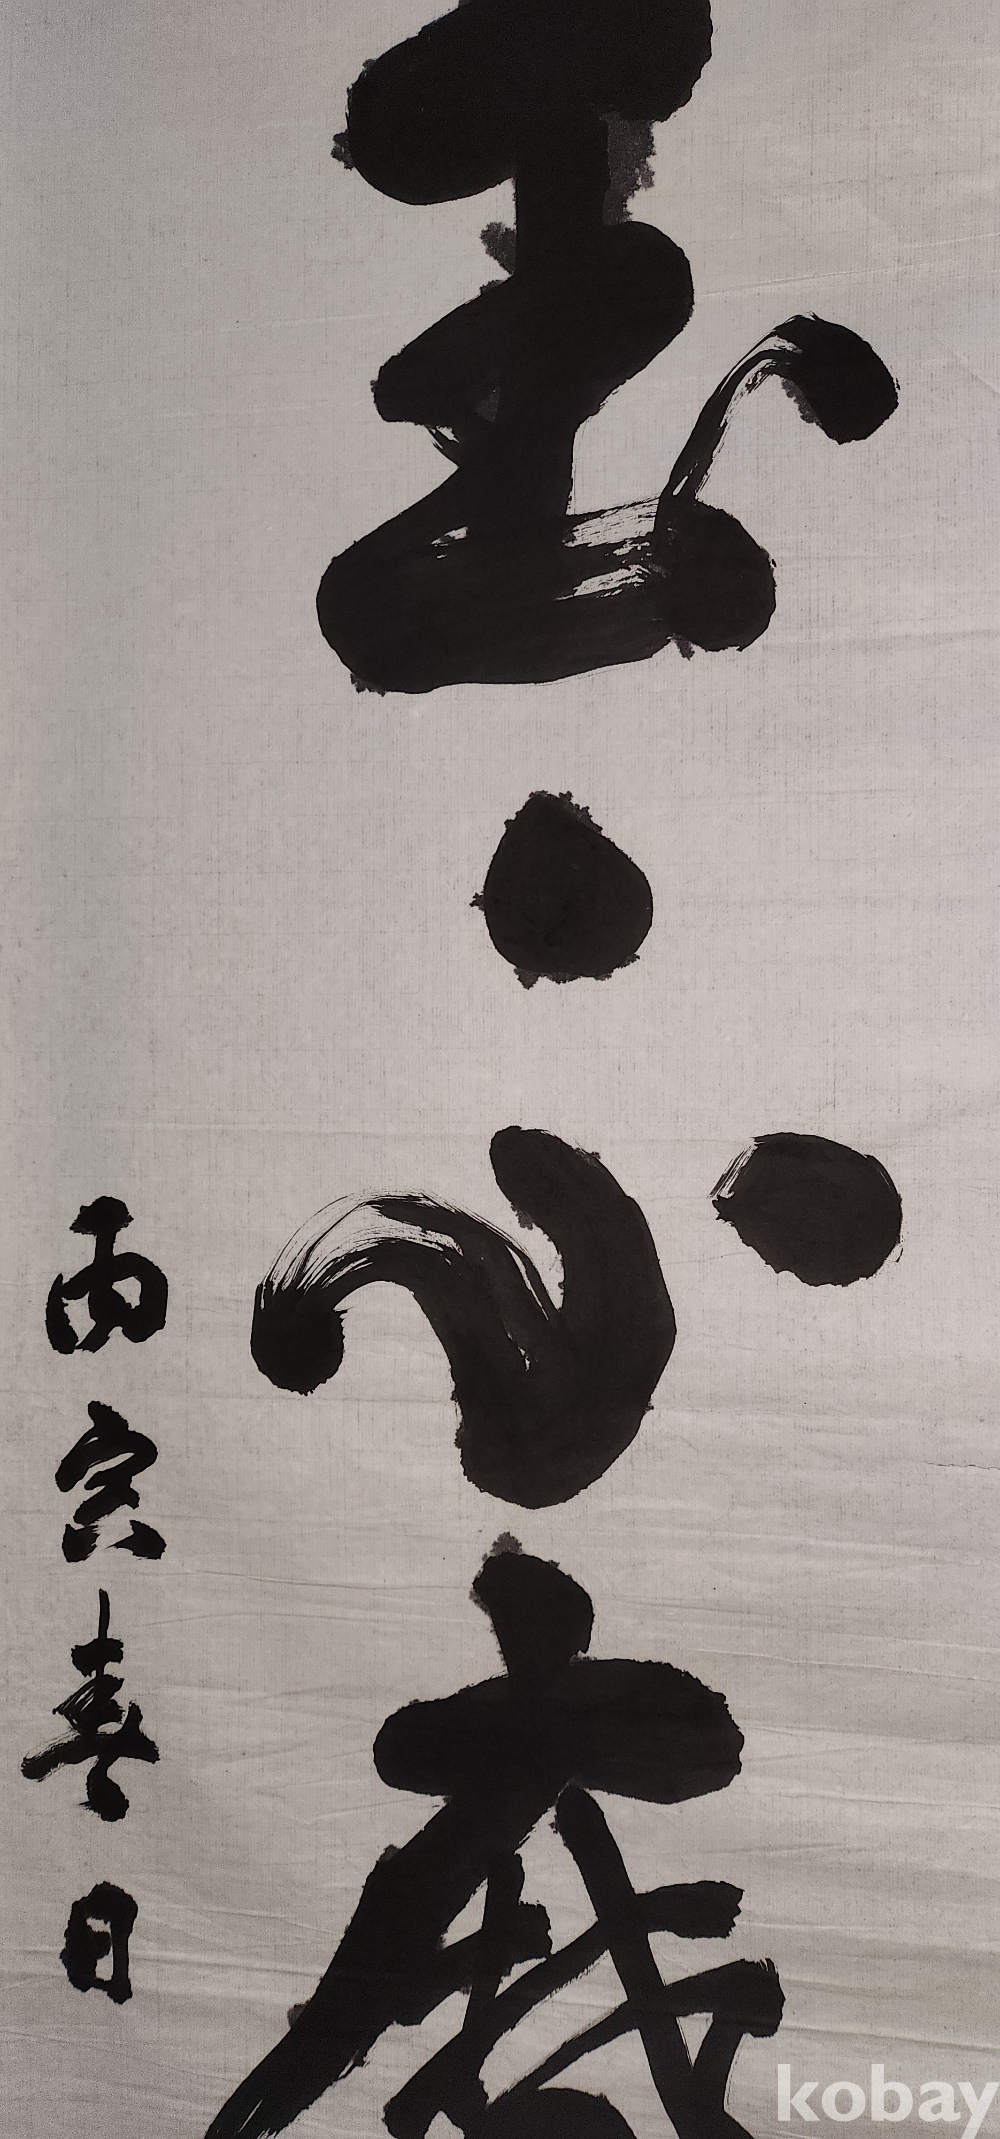 玉心
丙寅春日
kobay